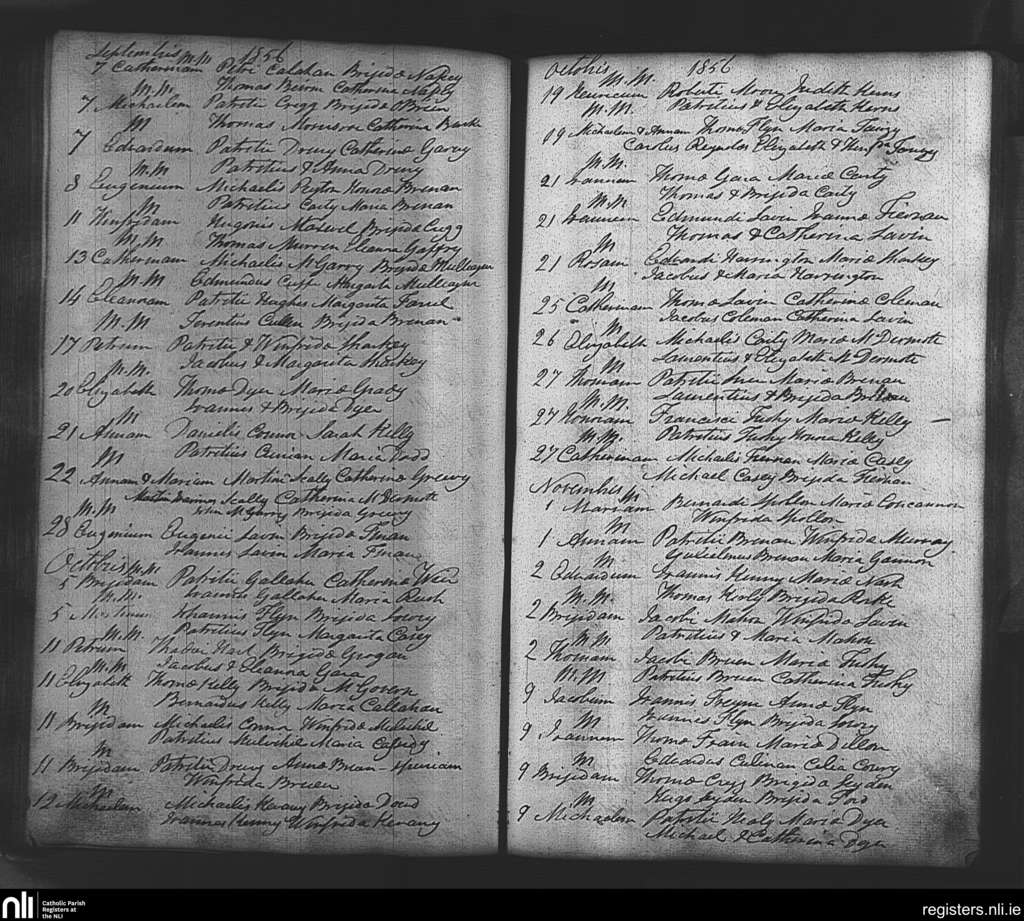 Septembris 1856
7 Catherinam Petri Calahan Brijidæ Napey
M.M. Thomas Beirne Catherina Napey
7 Michaelem Patritii Cregg Brijidæ OBrien
M Thomas Morrison Catherina Burke
7 Edvardum Patritii Drury Catherinæ Garvey
M.M Patritius & Anna Drury
8 Eugenium Michaelis Peyton Honoræ Brenan
M Patritius Carty Maria Brenan
11 Winfridam Hugonis Brijidæ Cregg
M.M Thomas Murren Eleanra Gaffey
13 Catherinam Michaelis McGarry Brijidæ Mulleager
M.M Edmundus Cuff Margarita Mulleager
14 Eleanoram Patritii Hughes Margarita Farrel
M.M Terentius Cullen Brijida Brenan
17 Petrum Patritii & Winfridæ Sharkey
M.M. Jacobus & Margarita Sharkey
20 Elizabeth Thomæ Dyer Mariæ Grady
Joannes & Brijida Dyer
M
21 Annam Danielis Connor Sarah Kelly
M Patritius Maria Dodd
22 Annam & Mariam Martini Scally Catherinæ Greevy
Scally Catherina McDermott
M.M John McGarry Brijida Greevy
28 Eugenium Eugenii Lavin Brijidæ Finan
Joannes Lavin Maria Finan
Octobris M.M
5 Brijidam Patritii Gallaher Catherinæ Weir
M.M. Joannes Gallaher Maria Rush
5 Joannis Flyn Brijida
M.M. Patritius Flyn Margarita Casey
11 Petrum Thadei Hart Brijidæ Grogan
M.M Jacobus & Eleanna Gara
11 Elizabeth Thomæ Kelly Brijida McGovern
M Bernardus Kelly Maria Callahan
11 Brijidam Michaelis Connor Winfridæ Mulvihil
Patritius Mulvihil Maria Cassidy
M
11 Brijidam Patritii Drury Annæ Brian - spuriam
Winfrida Bruen
M
12 Michaelem Michaelis Kevany Brijida Dowd
Joannes Kenny Winfrida Kevany
Octobris 1856
M.M.
19 Roberti Moon Judith Kerns
M.M. Patritius & Elizabeth Kerns
19 Michaelem & Annam Thomæ Flyn Maria
Carolus Reynolds Elizabeth &
M.M.
21 Joannem Thomæ Gara Mariæ Carty
M.M Thomas & Brijida Carty
21 Joannem Edmundi Lavin Joannæ Tiernan
M Thomas & Catherina Lavin
21 Rosam Edvardi Harrington Mariæ Sharkey
M Jacobus & Maria Harrington
25 Catherinam Thomæ Lavin Catherinæ Coleman
M Jacobus Coleman Catherina Lavin
26 Elizabeth Michaelis Carty Mariæ McDermott
M Laurentius & Elizabeth McDermott
27 Thomam Patritii Mariæ Brenan
M.M. Laurentius & Brijida
27 Honoram Francisci Tushy Mariæ Kelly
M.M. Patritius Tushy Honora Kelly
27 Catherinam Michaelis Mariæ Casey
Michael Casey Brijida
Novembris
M
1 Mariam Bernardi Spollen Mariæ Concannon
M Winfrida Spollon
1 Annam Patritii Brenan Winfridæ Murray
M Gulielmus Brenan Maria Gannon
2 Edvardum Joannis Kenny Mariæ Nash
M.M. Thomas Brijida
2 Brijidam Jacobi Mahon Winfrida Lavin
M.M Patritius & Maria Mahon
2 Thomam Jacobi Bruen Maria Tushy
M.M Patritius Bruen Catherina Tushy
9 Jacobum Joannis Freyne Annæ Flyn
M Joannes Flyn Brijida
9 Joannem Thomæ Frain Mariæ Dillon
M Edvardus Celia Conry
9 Brijidam Thomæ Cregg Brigida Leyden
M Hugo Leyden Brijida Ford
9 Michaelem Patritii Healy Mariæ Dyer
Michael & Catherina Dyer
nli
Catholic Parish
Registers at
the NLI
registers.nli.ie